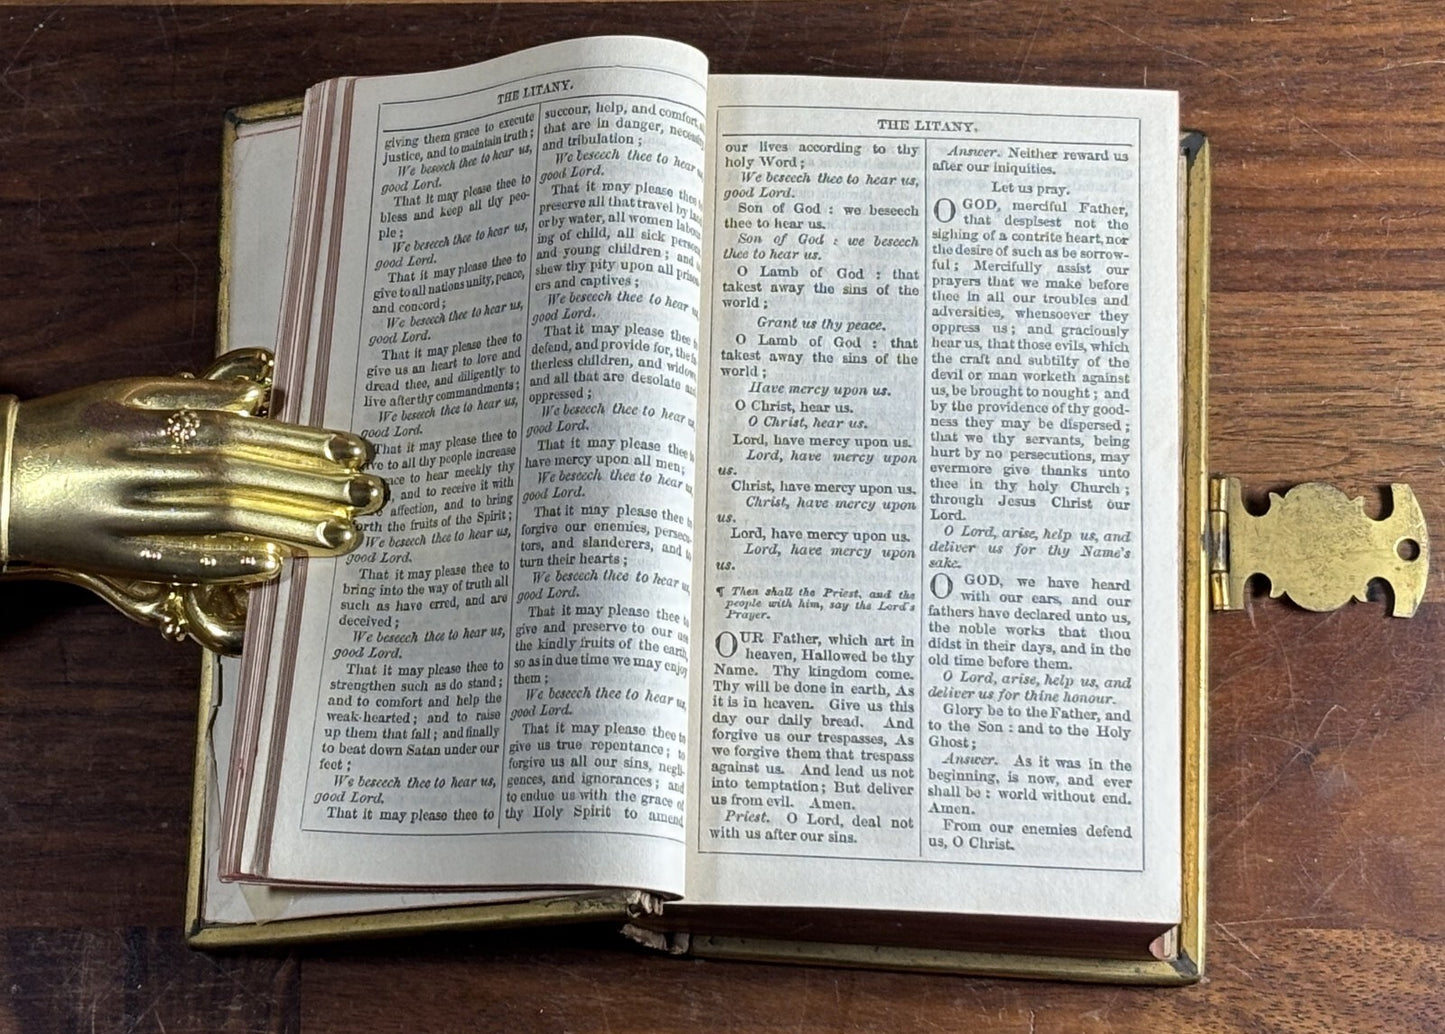 THE LITANY.
giving them grace to execute
justice, and to maintain truth;
We beseech thee to hear us,
good Lord.
That it may please thee to
bless and keep all thy peo-
ple;
We beseech thee to hear us,
good Lord.
That it may please thee to
give to all nations unity, peace,
and concord;
We beseech thee to hear us,
good Lord.
That it may please thee to
give us an heart to love and
dread thee, and diligently to
live after thy commandments;
We beseech thee to hear us,
good Lord.
That it may please thee to
to all thy people increase
to hear meekly thy
and to receive it with
affection, and to bring
forth the fruits of the Spirit;
We beseech thee to hear us,
good Lord.
That it may please thee to
bring into the way of truth all
such as have erred, and are
deceived;
We beseech thee to hear us,
good Lord.
That it may please thee to
strengthen such as do stand;
and to comfort and help the
weak-hearted; and to raise
up them that fall; and finally
to beat down Satan under our
feet;
We beseech thee to hear us,
good Lord.
That it may please thee to
succour, help, and comfort,
that are in danger,
and tribulation;
We beseech thee to hear
good Lord.
That it may please thee
preserve all that travel by
or by water, all women
ing of child, all sick
and young children; and
shew thy pity upon all
ers and captives;
We beseech thee to hear
good Lord.
That it may please thee
defend, and provide for, the
therless children, and
and all that are desolate
oppressed;
We beseech thee to hear
good Lord.
That it may please thee
have mercy upon all men;
We beseech thee to hear
good Lord.
That it may please thee
forgive our enemies, persecu-
tors, and slanderers, and
turn their hearts;
We beseech thee to hear us,
good Lord.
That it may please thee to
give and preserve to our use
the kindly fruits of the earth,
so as in due time we may enjoy
them;
We beseech thee to hear us,
good Lord.
That it may please thee to
give us true repentance; to
forgive us all our sins, negli-
gences, and ignorances; and
to endue us with the grace of
thy Holy Spirit to amend
THE LITANY.
our lives according to thy
holy Word;
We beseech thee to hear us,
good Lord.
Son of God: we beseech
thee to hear us.
Son of God: we beseech
thee to hear us.
O Lamb of God: that
takest away the sins of the
world;
Grant us thy peace.
O Lamb of God: that
takest away the sins of the
world;
Have mercy upon us.
O Christ, hear us.
O Christ, hear us.
Lord, have mercy upon us.
Lord, have mercy upon
us.
Christ, have mercy upon us.
Christ, have mercy upon
us.
Lord, have mercy upon us.
Lord, have mercy upon
us.
¶ Then shall the Priest, and the
people with him, say the Lord's
Prayer.
OUR Father, which art in
heaven, Hallowed be thy
Name. Thy kingdom come.
Thy will be done in earth, As
it is in heaven. Give us this
day our daily bread. And
forgive us our trespasses, As
we forgive them that trespass
against us. And lead us not
into temptation; But deliver
us from evil. Amen.
Priest. O Lord, deal not
with us after our sins.
Answer. Neither reward us
after our iniquities.
Let us pray.
O GOD, merciful Father,
that despisest not the
sighing of a contrite heart, nor
the desire of such as be sorrow-
ful; Mercifully assist our
prayers that we make before
thee in all our troubles and
adversities, whensoever they
oppress us; and graciously
hear us, that those evils, which
the craft and subtilty of the
devil or man worketh against
us, be brought to nought; and
by the providence of thy good-
ness they may be dispersed;
that we thy servants, being
hurt by no persecutions, may
evermore give thanks unto
thee in thy holy Church;
through Jesus Christ our
Lord.
O Lord, arise, help us, and
deliver us for thy Name's
sake.
O GOD, we have heard
with our ears, and our
fathers have declared unto us,
the noble works that thou
didst in their days, and in the
old time before them.
O Lord, arise, help us, and
deliver us for thine honour.
Glory be to the Father, and
to the Son: and to the Holy
Ghost;
Answer. As it was in the
beginning, is now, and ever
shall be: world without end.
Amen.
From our enemies defend
us, O Christ.